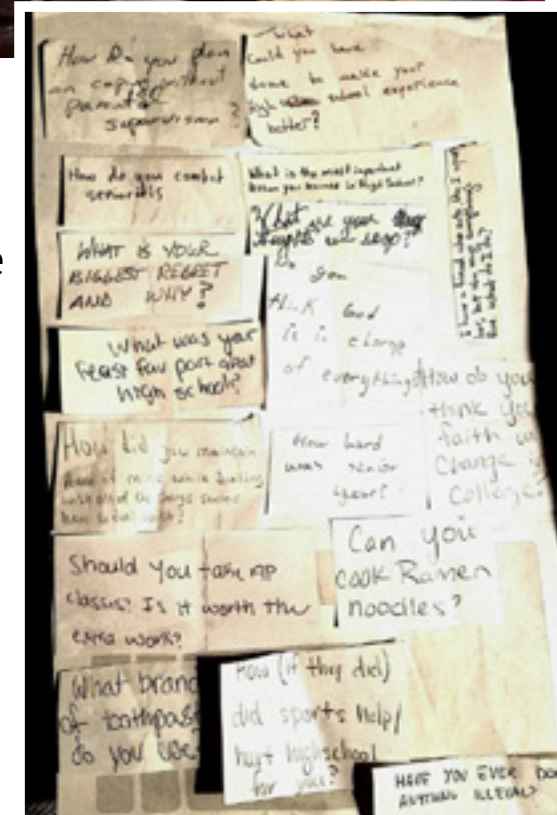 How Do you plan
on coping without
parental
supervision
?
What
could you have
done to make your
high school experience
better?
How do you combat
senioritis
What is the most important
lesson you learned in High School?
WHAT IS YOUR
BIGGEST REGRET
AND WHY?
What are your
thoughts on
Do you
think God
is in charge
of everything?
I have a friend who
What was your
least fav part about
high school?
How do you
think your
faith will
change
college?
How did you maintain
peace of mind while dealing
with all of the things seniors
have to deal with?
How hard
was senior
year?
Should you take AP
classes? Is it worth the
extra work?
Can you
cook Ramen
noodles?
What brand
of toothpaste
do you use?
How (if they did)
did sports help/
hurt highschool
for you?
HAVE YOU EVER DO
ANYTHING ILLEGAL?
e